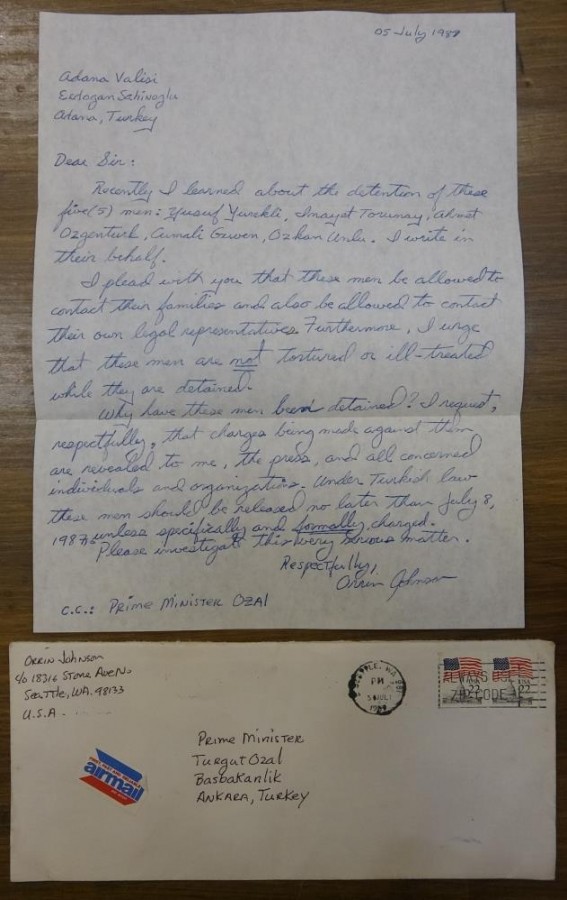 05 July 1987
Adana Valisi
Erdogan Sahinoglu
Adana, Turkey
Dear Sir:
Recently I learned about the detention of these
five (5) men: Yusuf Yurekli, Inayat Torunay, Ahmet
Ozgenturk, Cumali Guven, Ozkan Unlu. I write in
their behalf.
I plead with you that these men be allowed to
contact their families and also be allowed to contact
their own legal representatives. Furthermore, I urge
that these men are not tortured or ill-treated
while they are detained.
Why have these men been detained? I request,
respectfully, that charges being made against them
are revealed to me, the press, and all concerned
individuals and organizations. Under Turkish law
these men should be released no later than July 8,
1987 unless specifically and formally charged.
Please investigate this very serious matter.
Respectfully,
Orrin Johnson
C.C.: PRIME MINISTER OZAL
ORRIN JOHNSON
c/o 18316 STONE AVE N.
SEATTLE, WA. 98133
U.S.A.
SEATTLE, WA
PM
ALWAYS USE
ZIP CODE
22
22
airmail
PRIME MINISTER
TURGUT OZAL
BASBAKANLIK
ANKARA, TURKEY